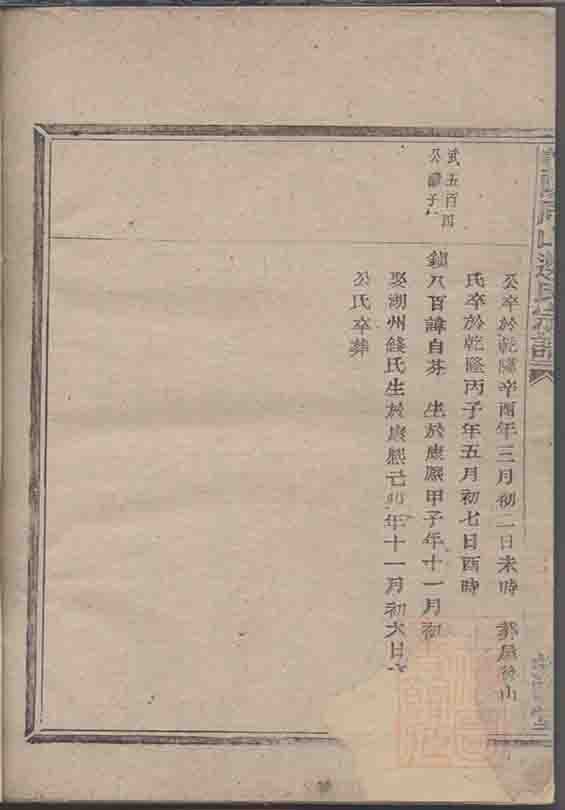 氏宗譜
武五百四
公諱子
公卒於乾隆辛酉年三月初二日未時 葬屋後山
氏卒於乾隆丙子年五月初七日酉時
八百諱自芬 生於康熙甲子年十一月初
娶湖州錢氏生於康熙己卯年十一月初六日
公氏卒葬